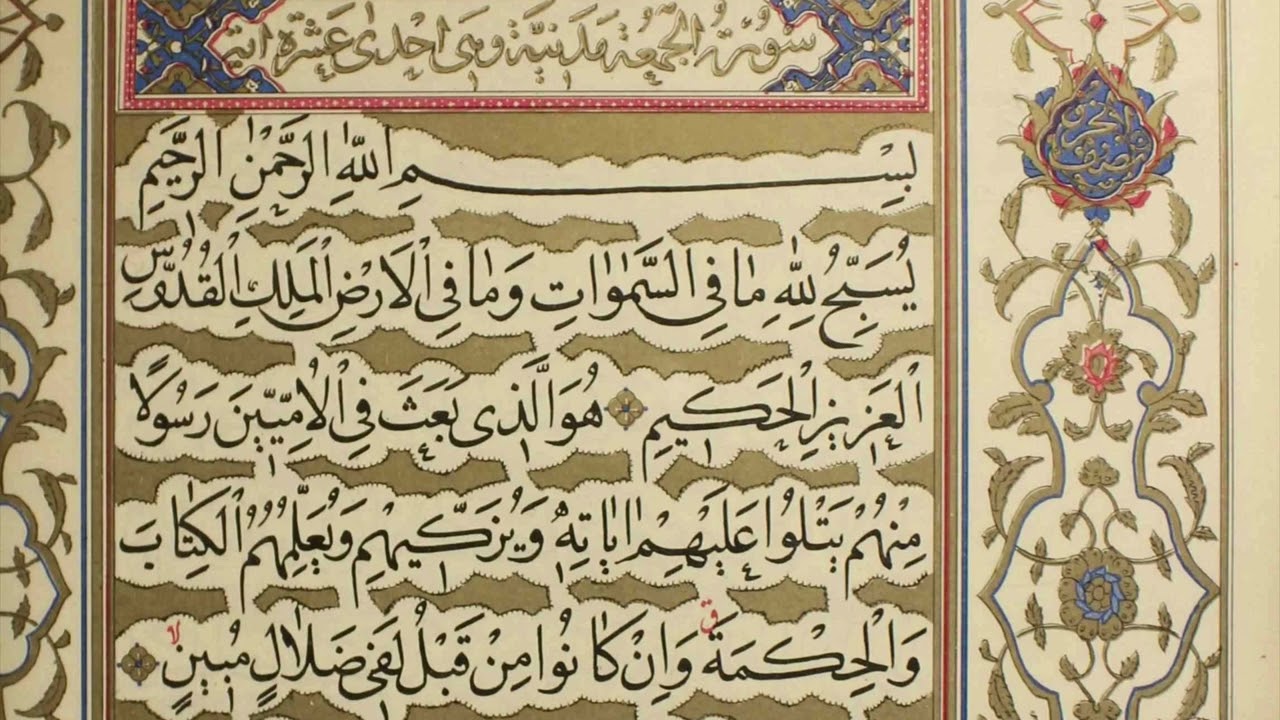 سُورَةُ الْجُمُعَةِ مَدَنِيَّةٌ وَهِىَ اِحْدٰى عَشْرَةَ اٰيَةً
بِسْمِ اللّٰهِ الرَّحْمٰنِ الرَّحِيمِ
يُسَبِّحُ لِلّٰهِ مَا فِى السَّمٰوَاتِ وَمَا فِى الْاَرْضِ الْمَلِكِ الْقُدُّوسِ
الْعَزِيزِ الْحَكِيمِ هُوَ الَّذِى بَعَثَ فِى الْاُمِّيِّينَ رَسُولًا
مِنْهُمْ يَتْلُوا عَلَيْهِمْ اٰيَاتِهِ وَيُزَكِّيهِمْ وَيُعَلِّمُهُمُ الْكِتَابَ
وَالْحِكْمَةَ ق وَاِنْ كَانُوا مِنْ قَبْلُ لَفِى ضَلَالٍ مُبِينٍ لا